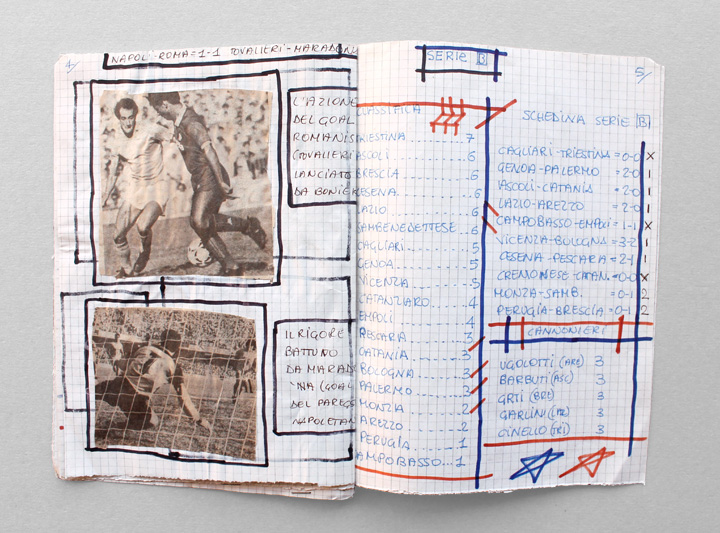 4/
NAPOLI-ROMA=1-1 TOVALIERI-MARADONA
L'AZIONE
DEL GOAL
ROMANIS
(TOVALIERI
LANCIATO
DA BONIEK
IL RIGORE
BATTUTO
DA MARADO
NA (GOAL
DEL PAREGG
NAPOLETAN
5/
SERIE B
CLASSIFICA
TRIESTINA.......7
ASCOLI.......6
BRESCIA.......6
CESENA.......6
LAZIO.......6
SAMBENEDETTESE.6
CAGLIARI.......5
GENOA.......5
VICENZA.......5
CATANZARO....4
EMPOLI.......4
PESCARA.......3
CATANIA.......3
BOLOGNA.......3
PALERMO.......2
MONZA.......2
AREZZO.......2
PERUGIA.......1
CAMPOBASSO...1
SCHEDINA SERIE B
CAGLIARI-TRIESTINA=0-0 X
GENOA-PALERMO =2-0 1
ASCOLI-CATANIA =2-0 1
LAZIO-AREZZO =2-0 1
CAMPOBASSO-EMPOLI=1-1 X
VICENZA-BOLOGNA =3-2 1
CESENA-PESCARA =2-1 1
CREMONESE-CATAN.=0-0 X
MONZA-SAMB. =0-1 2
PERUGIA-BRESCIA =0-1 2
CANNONIERI
UGOLOTTI (ARE) 3
BARBUTI (ASC) 3
GRITI (BRE) 3
GARLINI (LAZ) 3
CINELLO (TRI) 3